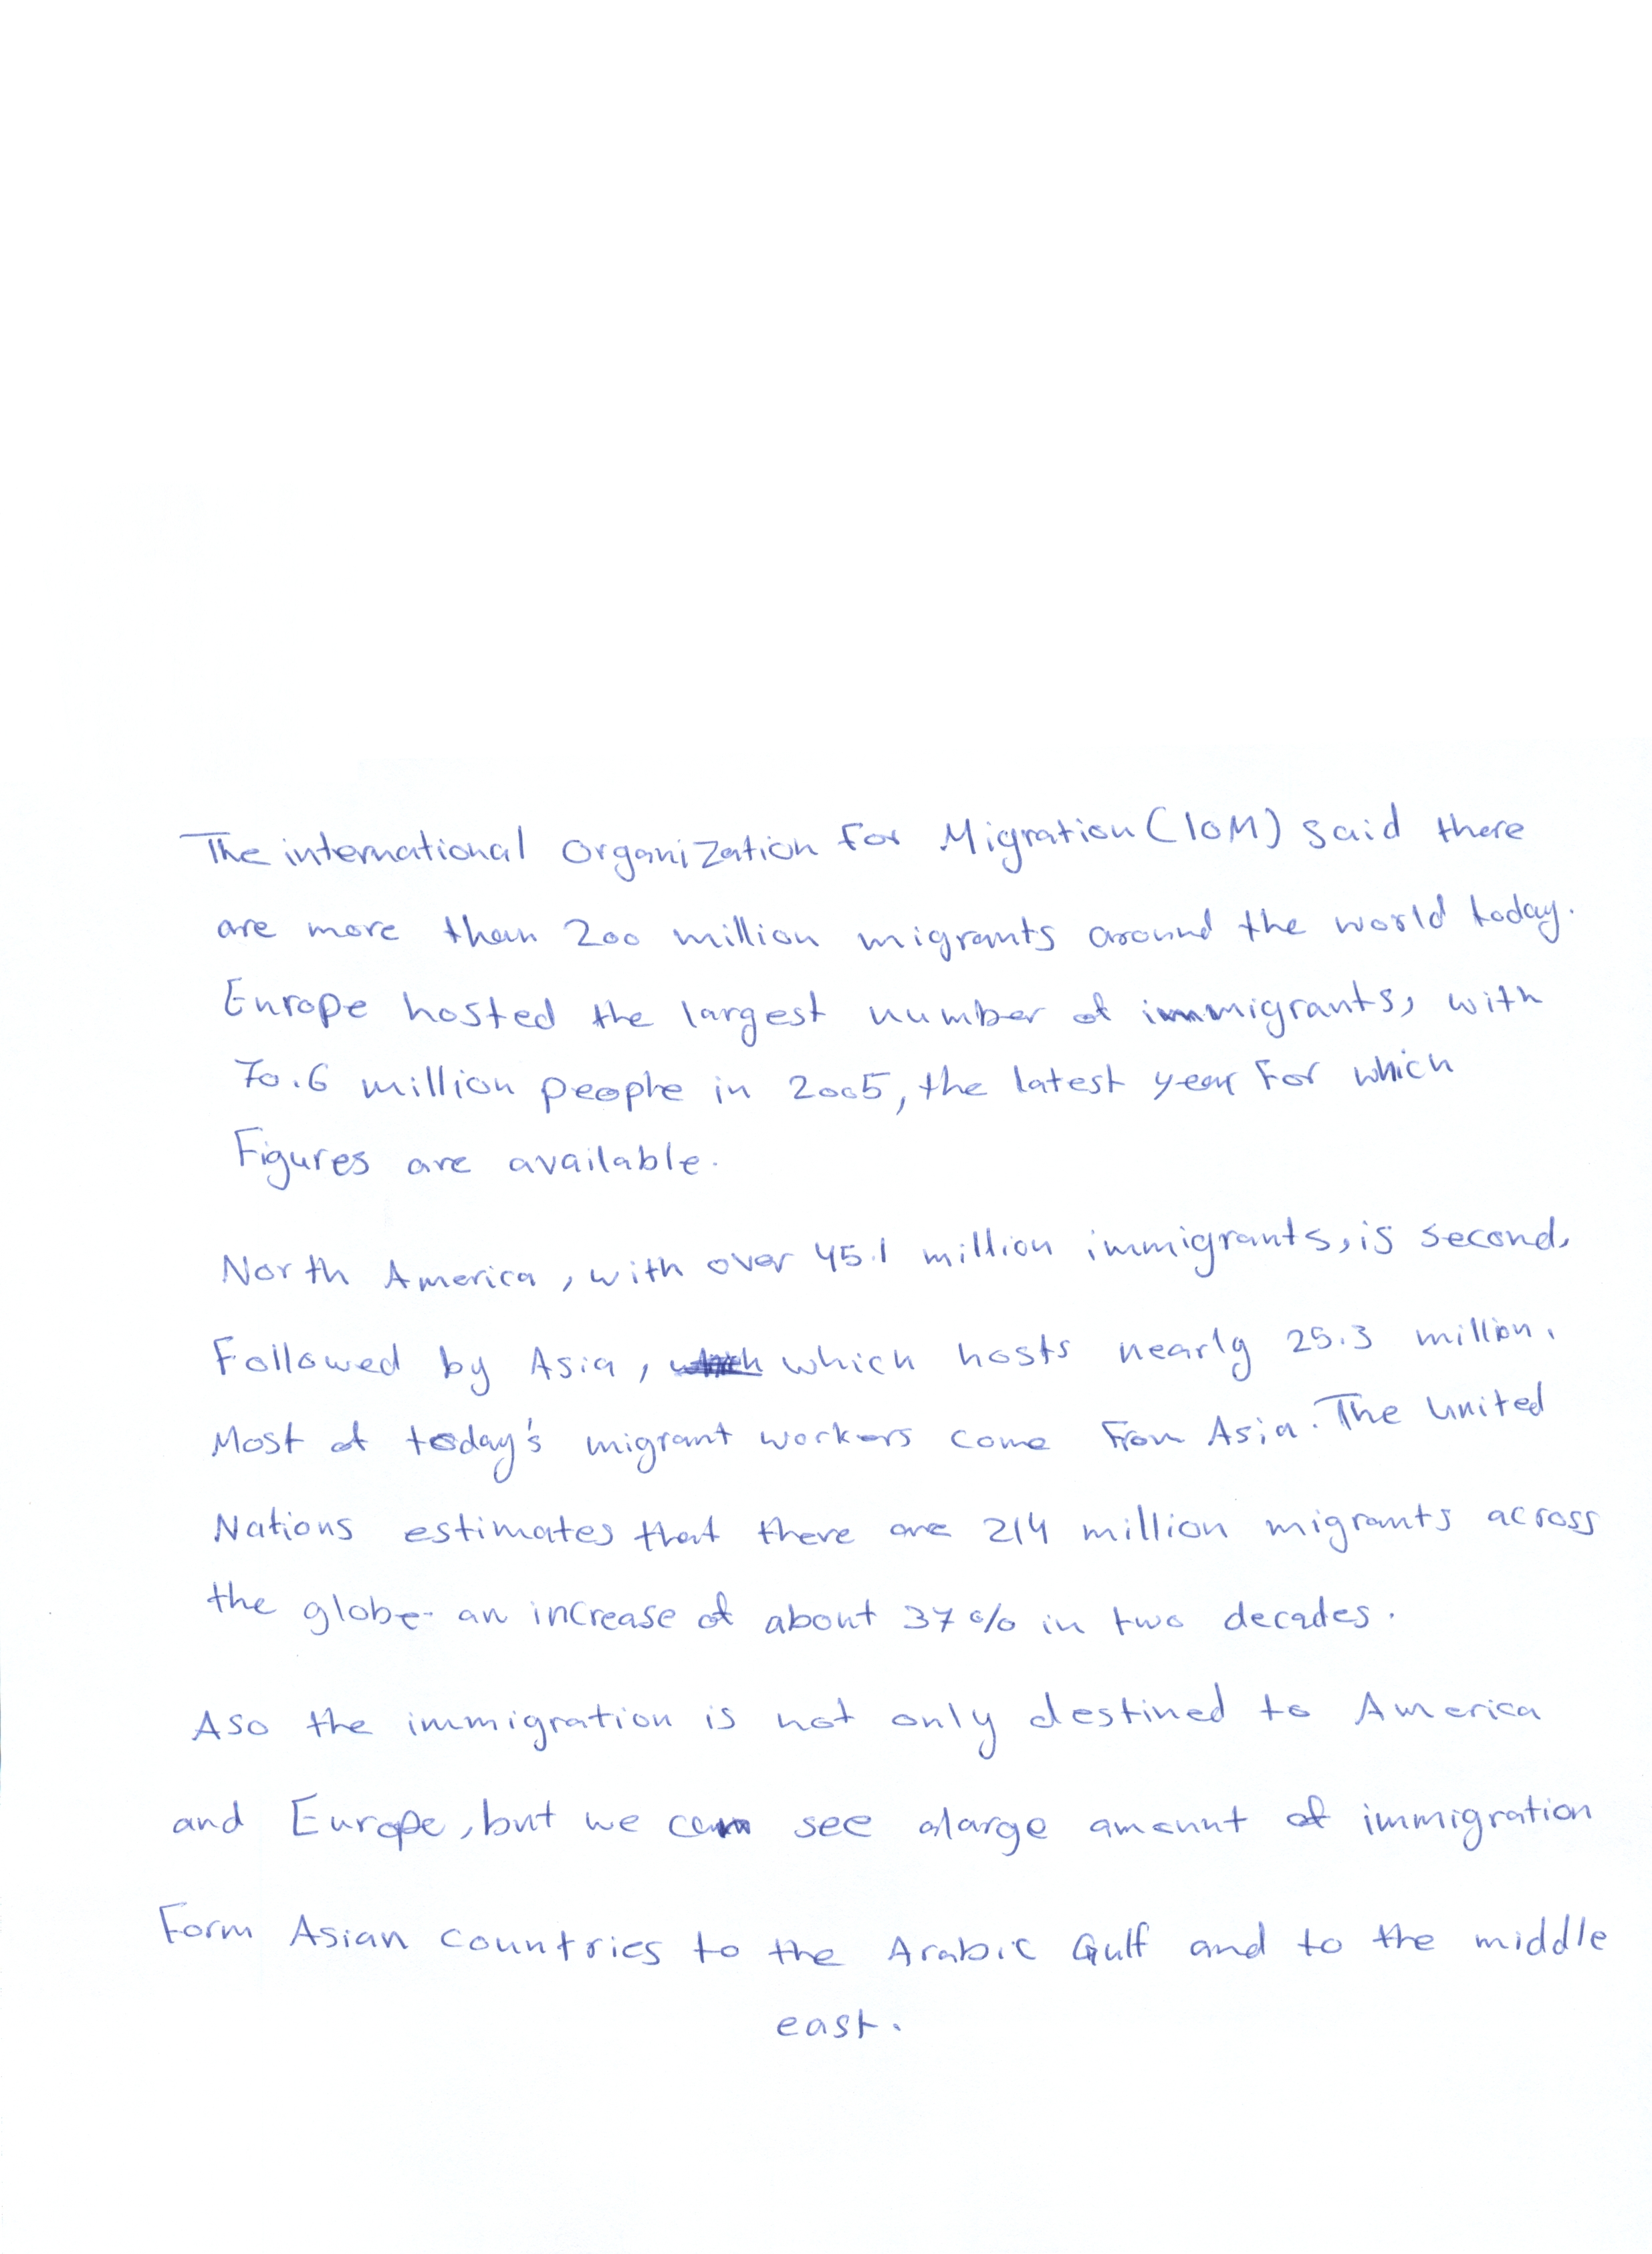 The international Organization For Migration (IOM) said there
are more than 200 million migrants around the world today.
Europe hosted the largest number of immigrants, with
70.6 million people in 2005, the latest year For which
Figures are available.
North America, with over 45.1 million immigrants, is second,
Followed by Asia, which hosts nearly 25.3 million.
Most of today's migrant workers come From Asia. The United
Nations estimates that there are 214 million migrants across
the globe- an increase of about 37% in two decades.
Aso the immigration is not only destined to America
and Europe, but we can see alarge amount of immigration
Form Asian countries to the Arabic Gulf and to the middle
east.